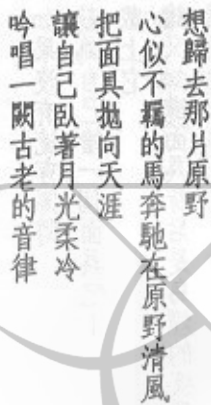 想歸去那片原野
心似不羈的馬奔馳在原野清風
把面具拋向天涯
讓自己臥著月光柔冷
吟唱一闕古老的音律